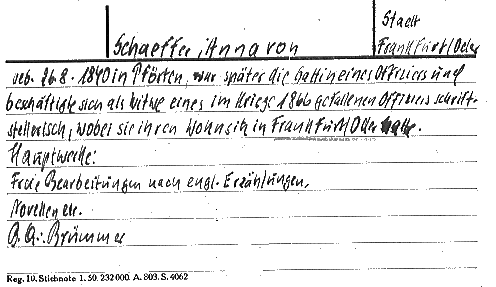 Stadt
Schaeffer, Anna von Frankfurt/Oder
geb. 26.8.1840 in Pförten, war später die Gattin eines Offiziers und
beschäftigte sich als Witwe eines im Kriege 1866 gefallenen Offiziers schrift-
stellerisch, wobei sie ihren Wohnsitz in Frankfurt/Oder hatte.
Hauptwerke:
Freie Bearbeitungen nach engl. Erzählungen,
Novellen etc.
Q.Qu.: Brümmer
Reg. 10. Stichnote 1. 50. 232000. A. 803. S. 4062